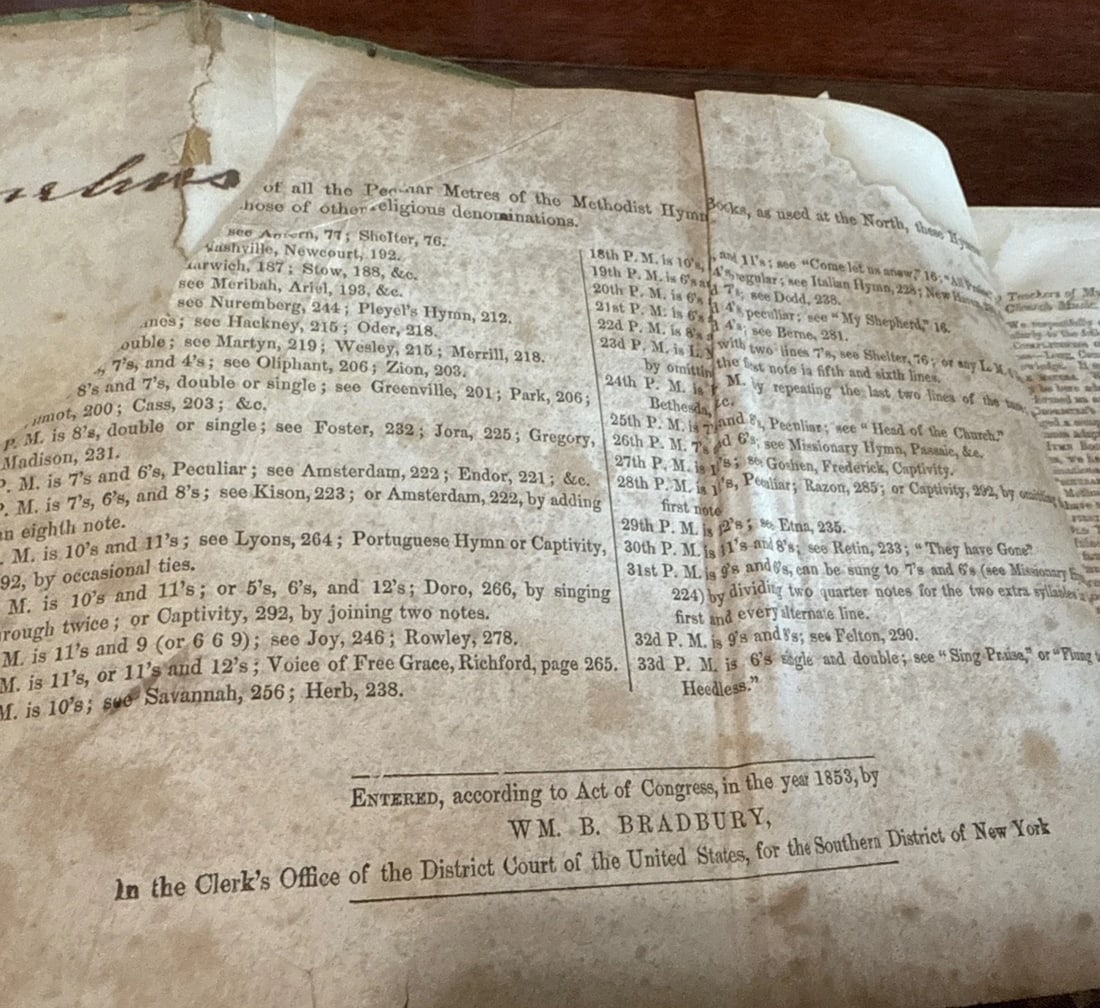 of all the Peculiar Metres of the Methodist Hymn Books, as used at the North, these Hymns
those of other religious denominations.
see 77; Shelter, 76.
Nashville, Newcourt, 192.
Harwich, 187; Stow, 188, &c.
see Meribah, Ariel, 193, &c.
see Nuremberg, 244; Pleyel's Hymn, 212.
ines; see Hackney, 215; Oder, 218.
ouble; see Martyn, 219; Wesley, 215; Merrill, 218.
, 7's, and 4's; see Oliphant, 206; Zion, 203.
8's and 7's, double or single; see Greenville, 201; Park, 206;
200; Cass, 203; &c.
P. M. is 8's, double or single; see Foster, 232; Jora, 225; Gregory,
Madison, 231.
P. M. is 7's and 6's, Peculiar; see Amsterdam, 222; Endor, 221; &c.
P. M. is 7's, 6's, and 8's; see Kison, 223; or Amsterdam, 222, by adding
an eighth note.
. M. is 10's and 11's; see Lyons, 264; Portuguese Hymn or Captivity,
92, by occasional ties.
M. is 10's and 11's; or 5's, 6's, and 12's; Doro, 266, by singing
rough twice; or Captivity, 292, by joining two notes.
M. is 11's and 9 (or 6 6 9); see Joy, 246; Rowley, 278.
M. is 11's, or 11's and 12's; Voice of Free Grace, Richford, page 265.
M. is 10's; see Savannah, 256; Herb, 238.
18th P. M. is 10's, and 11's; see "Come let us anew," 16; "All Praise"
19th P. M. is 6's 4's, regular; see Italian Hymn, 228; New Haven,
20th P. M. is 6's 7's; see Dodd, 238.
21st P. M. is 6's 4's peculiar; see "My Shepherd," 16.
22d P. M. is 8's 4's; see Berne, 281.
23d P. M. is L. M. with two lines 7's, see Shelter, 76; or any L. M.
by omitting the first note in fifth and sixth lines.
24th P. M. is M. by repeating the last two lines of the tune,
Bethesda, &c.
25th P. M. is 7's and 8's, Peculiar; see "Head of the Church."
26th P. M. 7's and 6's; see Missionary Hymn, Passaic, &c.
27th P. M. is 11's; see Goshen, Frederick, Captivity.
28th P. M. is 11's, Peculiar; Razon, 285; or Captivity, 292, by omitting
first note
29th P. M. is 12's; see Etna, 235.
30th P. M. is 11's and 8's; see Retin, 233; "They have Gone"
31st P. M. is 9's and 6's, can be sung to 7's and 6's (see Missionary
224) by dividing two quarter notes for the two extra syllables
first and every alternate line.
32d P. M. is 9's and 8's; see Felton, 290.
33d P. M. is 6's single and double; see "Sing Praise," or "Flung
Heedless."
ENTERED, according to Act of Congress, in the year 1853, by
WM. B. BRADBURY,
In the Clerk's Office of the District Court of the United States, for the Southern District of New York
Teachers of
Church Music